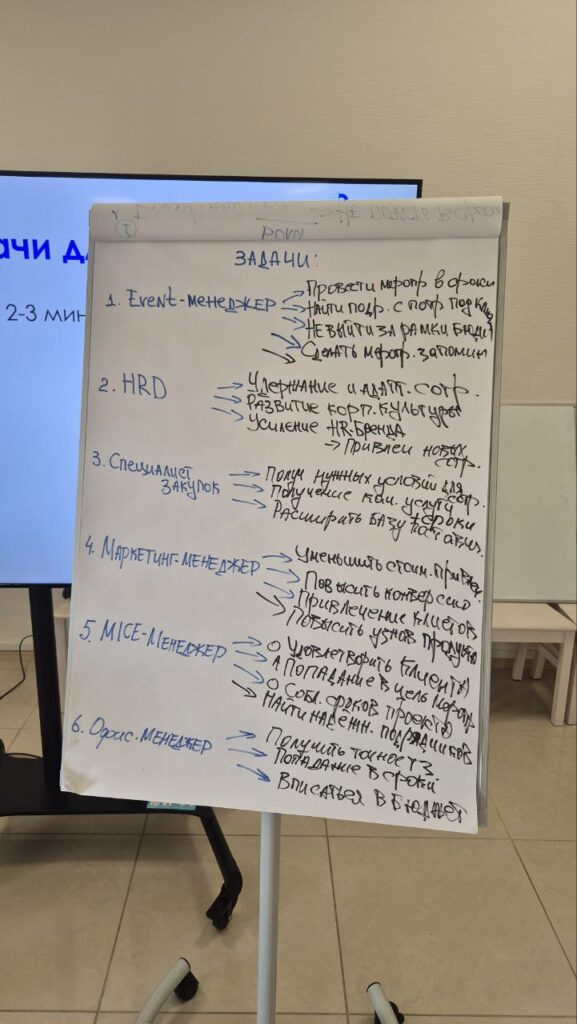 ачи д
2-3 мин
ЗАДАЧИ:
1. Event-менеджер → Провести меропр в сроки
→ Найти подр. с потр. под
→ Не выйти за рамки
→ Сделать меропр. запомин
2. HRD → Удержание и адапт. сотр.
→ Развитие корп. культуры
→ Усиление HR-бренда
→ Привлеч новых
сотр.
3. Специалист
закупок
→ Получ нужных условий для сотр.
→ Получение кач. услуги
+ сроки
→ Расширить базу поставщ.
4. Маркетинг-менеджер → Уменьшить стоим. привлеч.
→ Повысить конверсию
→ Привлечение клиетов
→ Повысить узнов продукта
5. MICE-менеджер → Удовлетворить клиента
→ Попадание в цель меропр.
→ Собл. сроков проекта
→ Найти надежн. подрядчиков
6. Офис-менеджер → Получить точное ТЗ
→ Попадание в сроки
→ Вписаться в бюджет